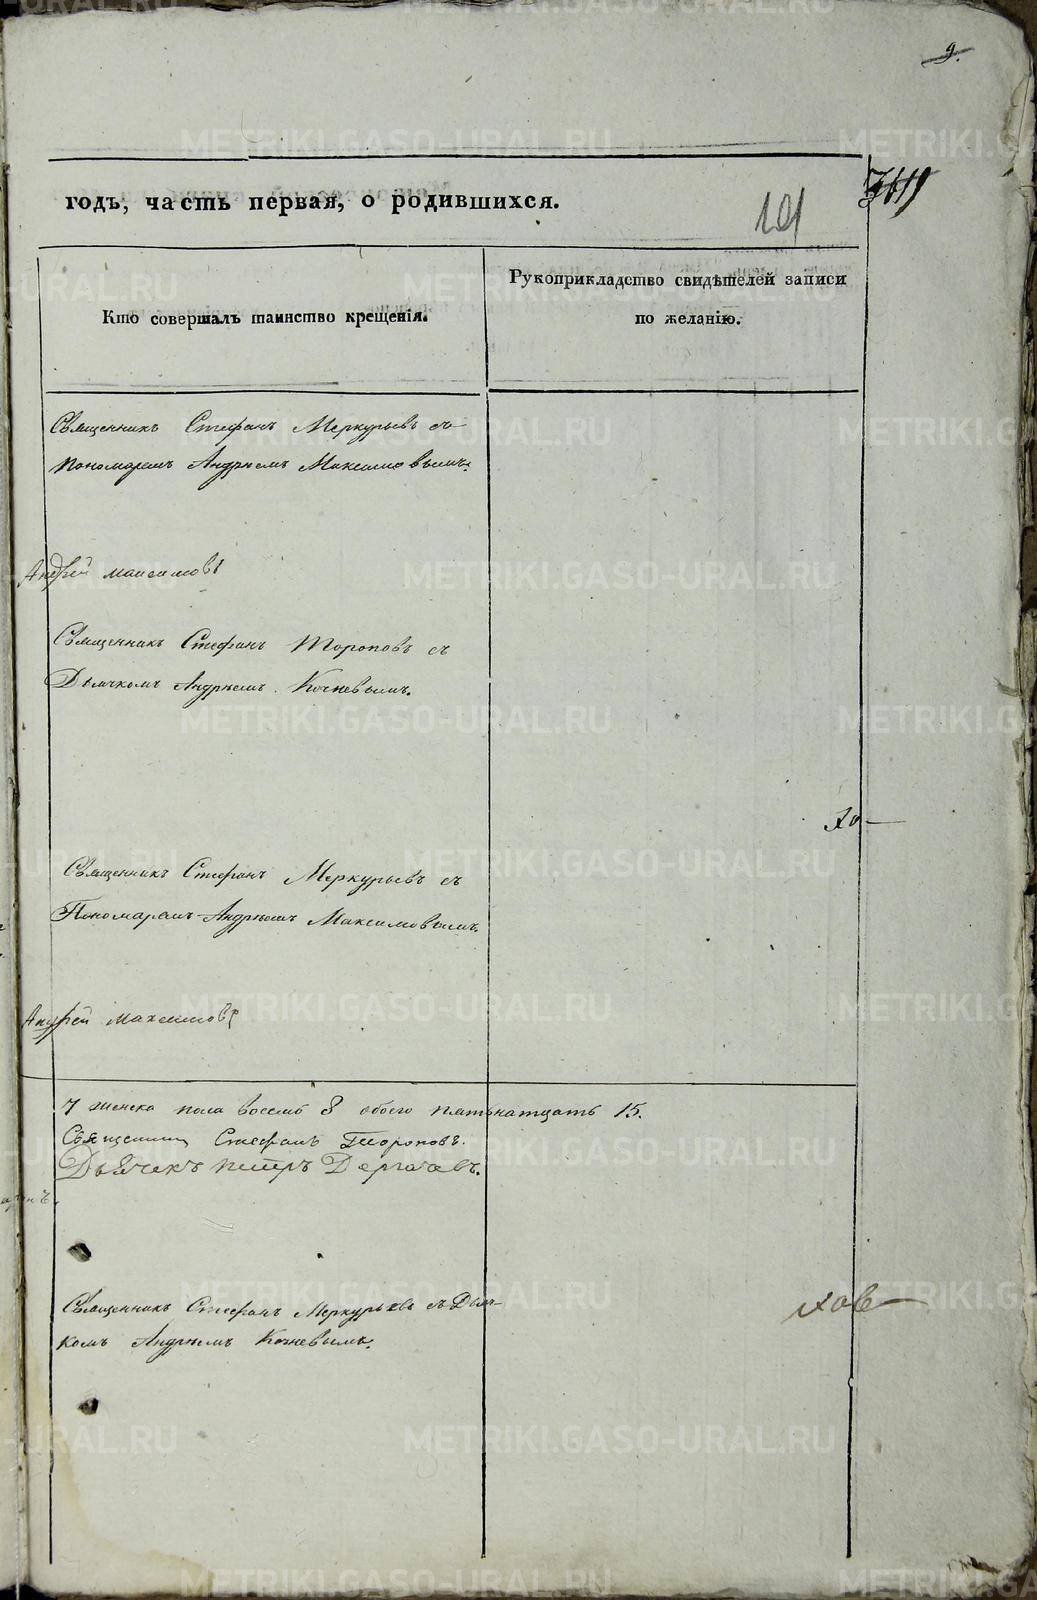 9.
годъ, часть первая, о родившихся.
101
Кто совершалъ таинство крещенія.
Рукоприкладство свидѣтелей записи
по желанію.
Священникъ Стефанъ Меркурьевъ съ
пономаремъ Андрѣемъ Максимовымъ.
Андрей максимовъ
Священникъ Стефанъ Тороповъ съ
Дьячкомъ Андрѣемъ Кочневымъ.
Священникъ Стефанъ Меркурьевъ съ
Пономаремъ Андрѣемъ Максимовымъ.
Андрей максимовъ
7 женска пола восемь 8 обоего пятьнатцать 15.
Священникъ Стефанъ Тороповъ.
Дьячекъ петръ Дергачевъ.
Священникъ Стефанъ Меркурьевъ съ Дьяч-
комъ Андрѣемъ Кочневымъ.
METRIKI.GASO-URAL.RU